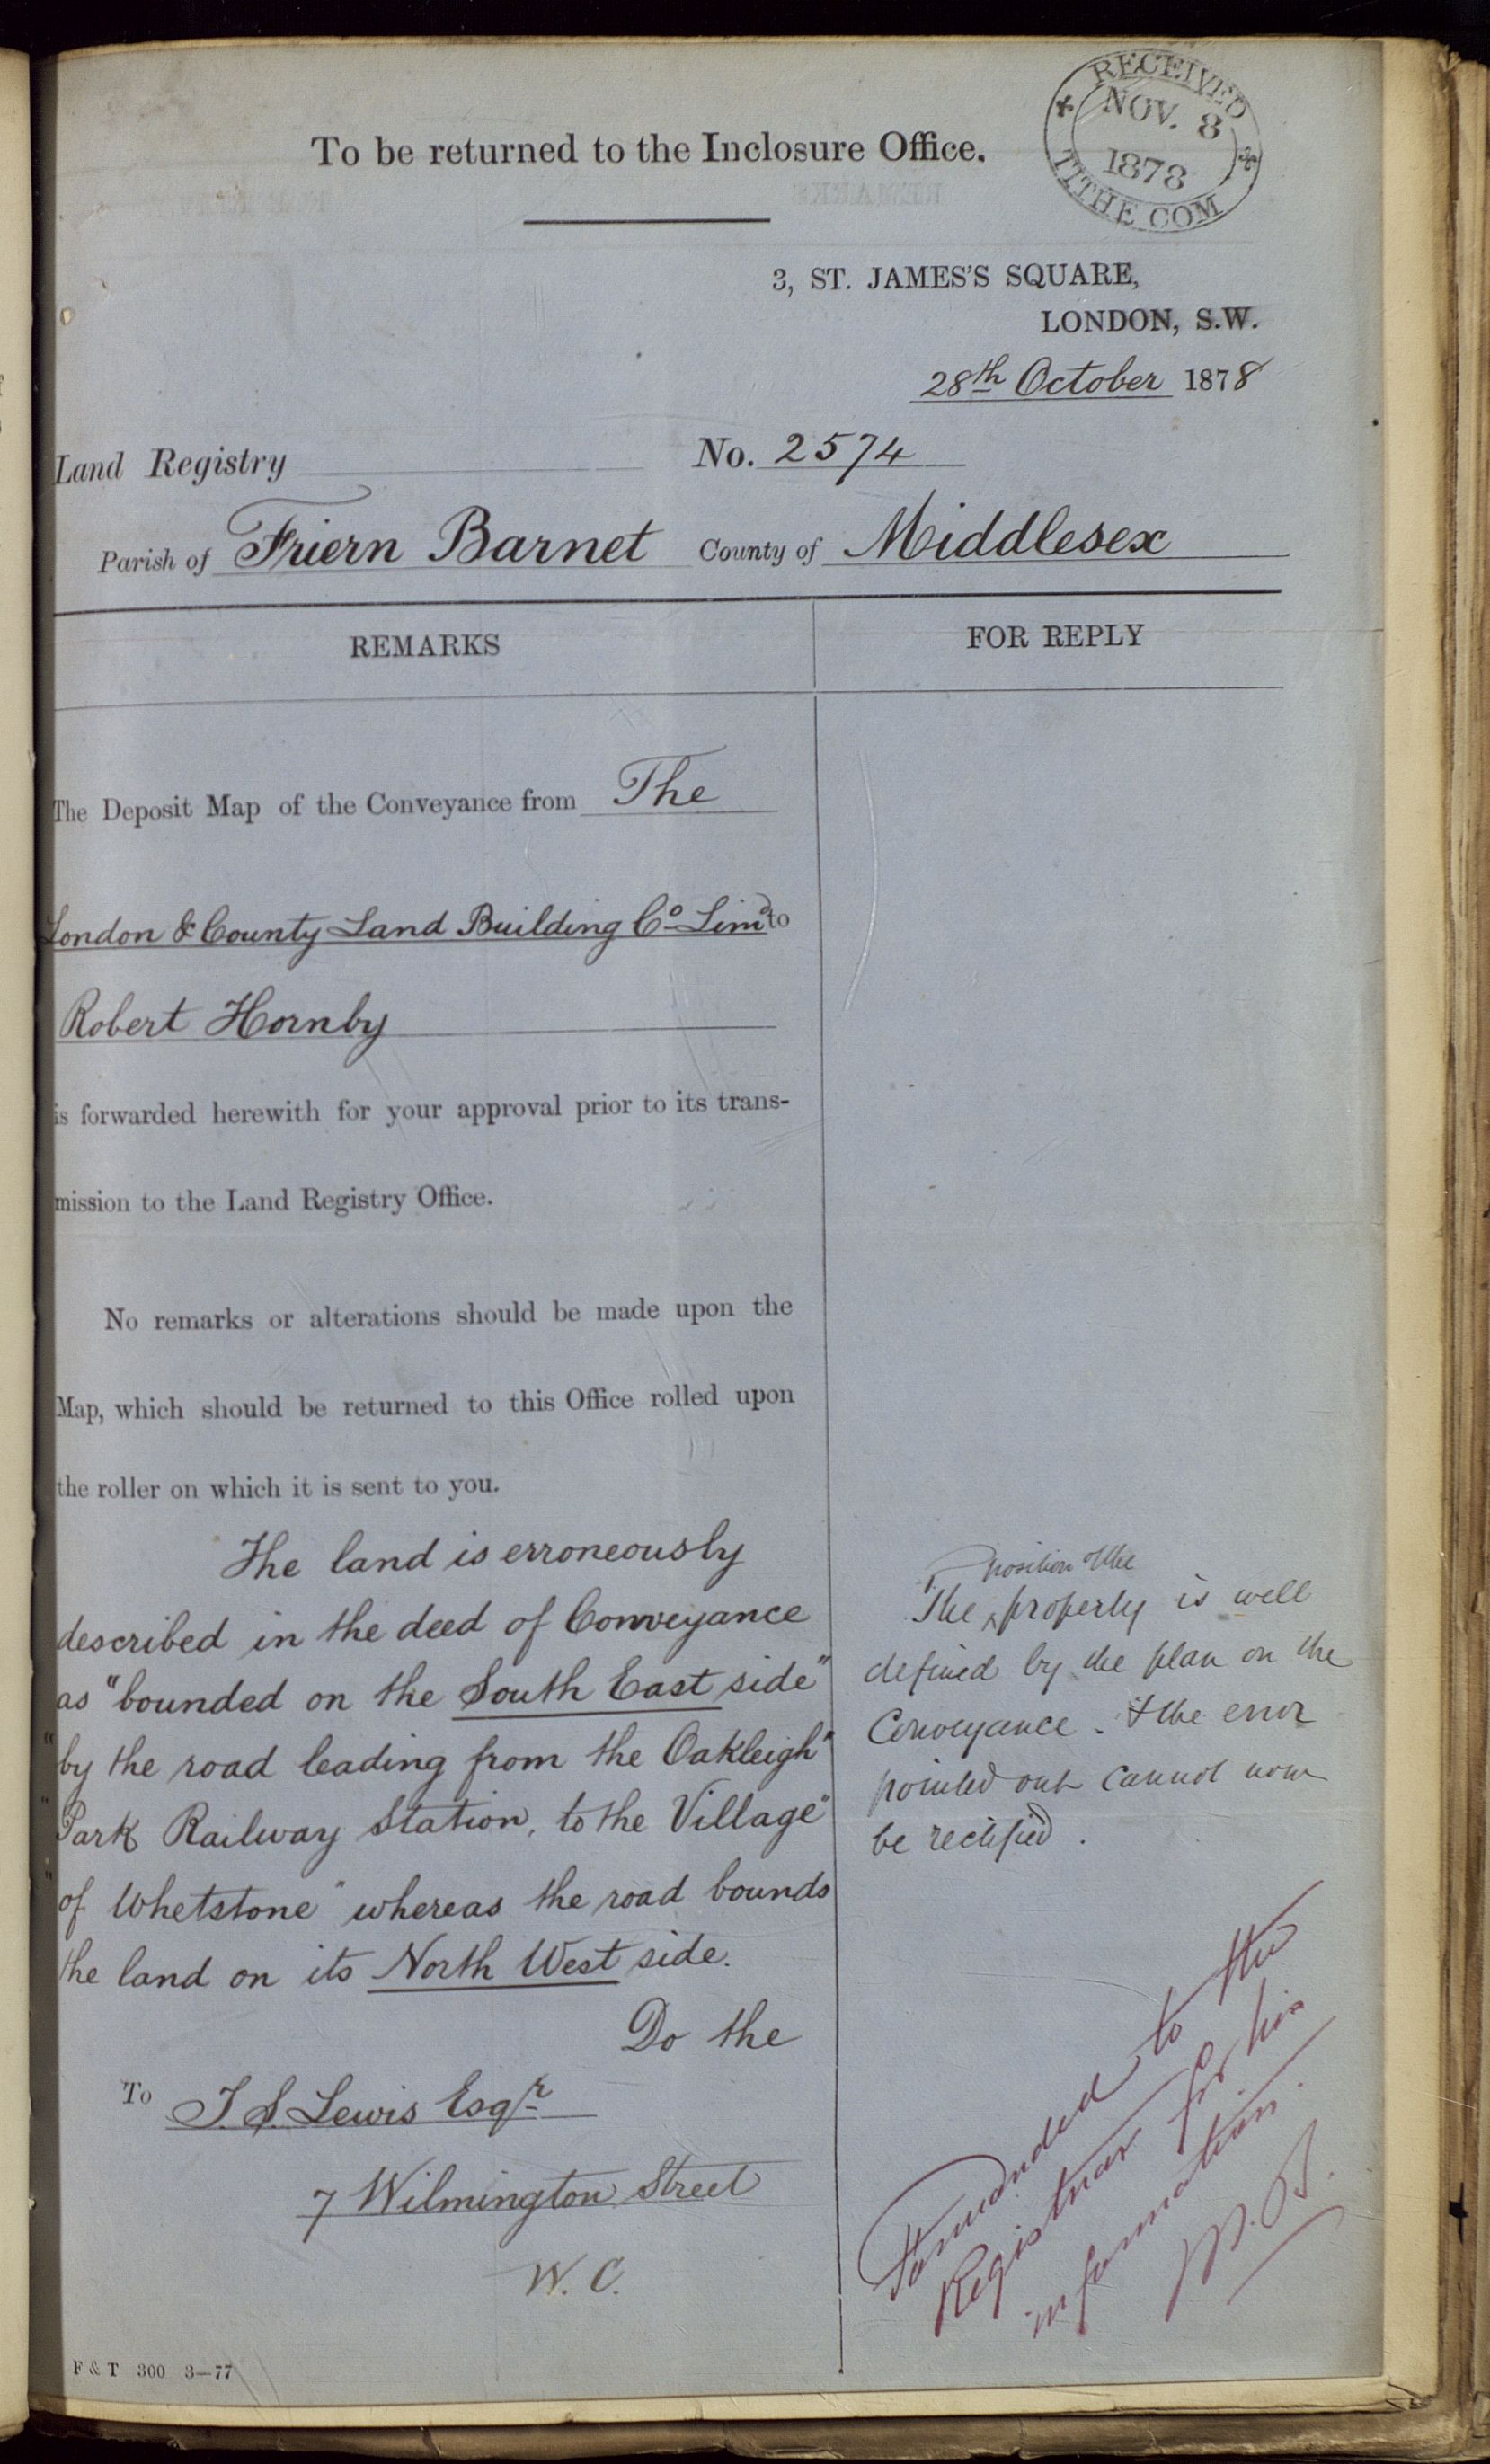 RECEIVED
NOV. 8
1878
TITHE COM
To be returned to the Inclosure Office.
3, ST. JAMES'S SQUARE,
LONDON, S.W.
28th October 1878
Land Registry No. 2574
Parish of Friern Barnet County of Middlesex
REMARKS
The Deposit Map of the Conveyance from The
London & County Land Building Co Limd to
Robert Hornby
is forwarded herewith for your approval prior to its trans-
mission to the Land Registry Office.
No remarks or alterations should be made upon the
Map, which should be returned to this Office rolled upon
the roller on which it is sent to you.
The land is erroneously
described in the deed of Conveyance
as "bounded on the South East side"
"by the road leading from the Oakleigh"
"Park Railway Station, to the Village"
"of Whetstone" whereas the road bounds
the land on its North West side.
Do the
To J. S. Lewis Esqr
7 Wilmington Street
W. C.
F & T 300 3—77
FOR REPLY
position of the
The property is well
defined by the plan on the
Conveyance. & the error
pointed out cannot now
be rectified.
Forwarded to the
Registrar for his
information.